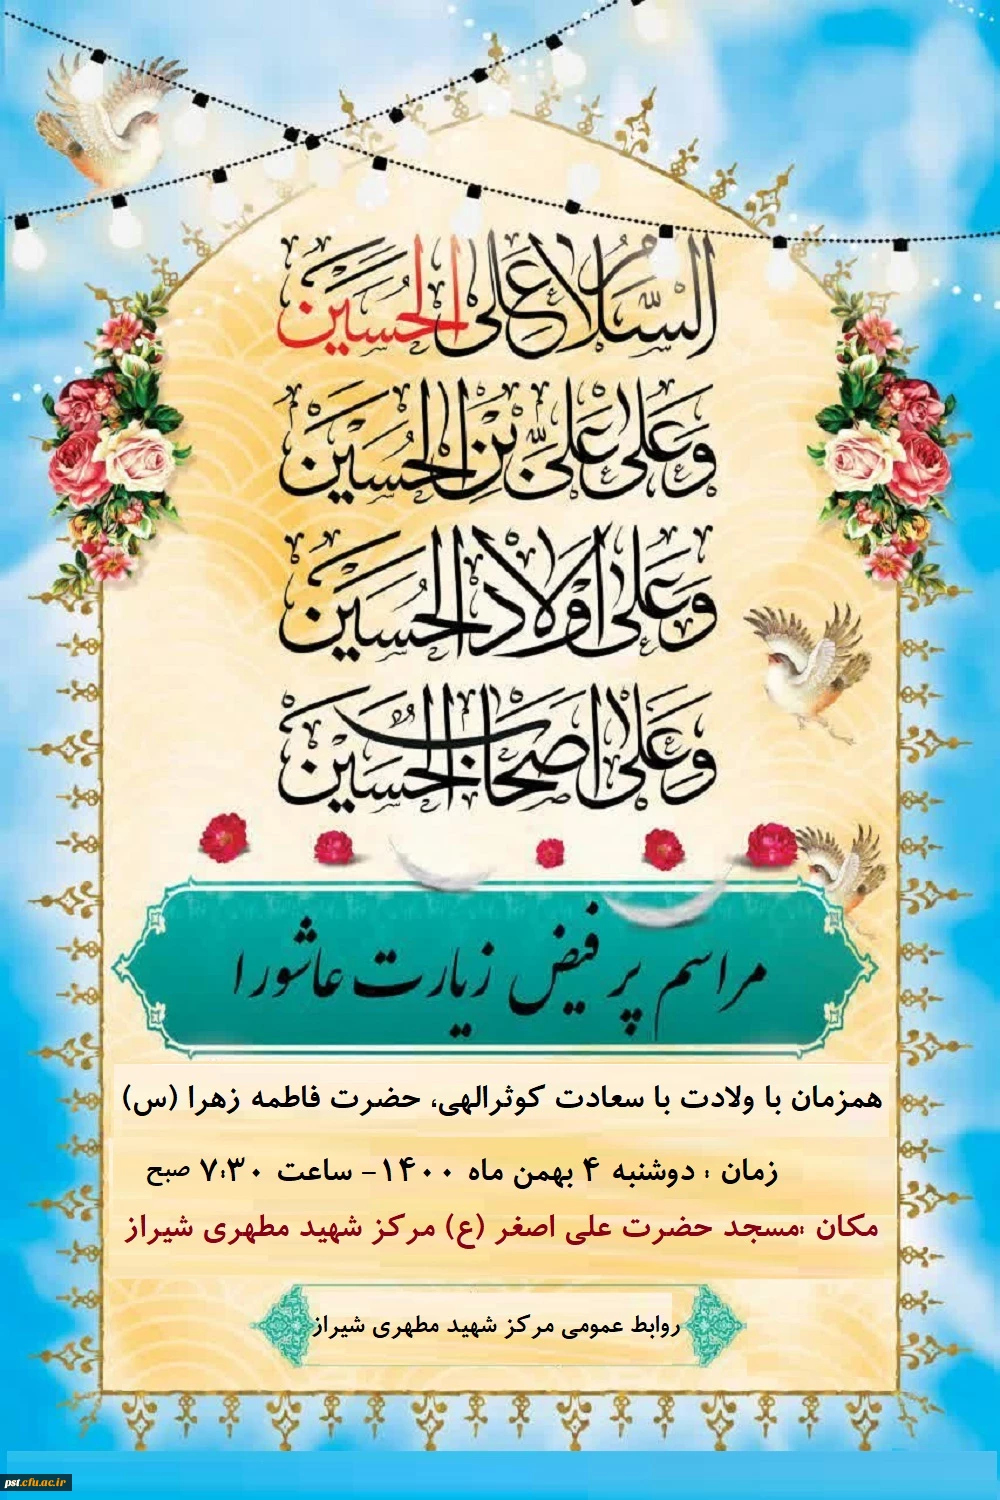 السَّلامُ عَلَی الحُسَین
وَعَلی عَلیِّ بنِ الحُسَین
وَعَلی اَولادِ الحُسَین
وَعَلی اَصحابِ الحُسَین
مراسم پر فیض زیارت عاشورا
همزمان با ولادت با سعادت کوثرالهی، حضرت فاطمه زهرا (س)
زمان : دوشنبه ۴ بهمن ماه ۱۴۰۰- ساعت ۷:۳۰ صبح
مکان :مسجد حضرت علی اصغر (ع) مرکز شهید مطهری شیراز
روابط عمومی مرکز شهید مطهری شیراز
pst.cfu.ac.ir